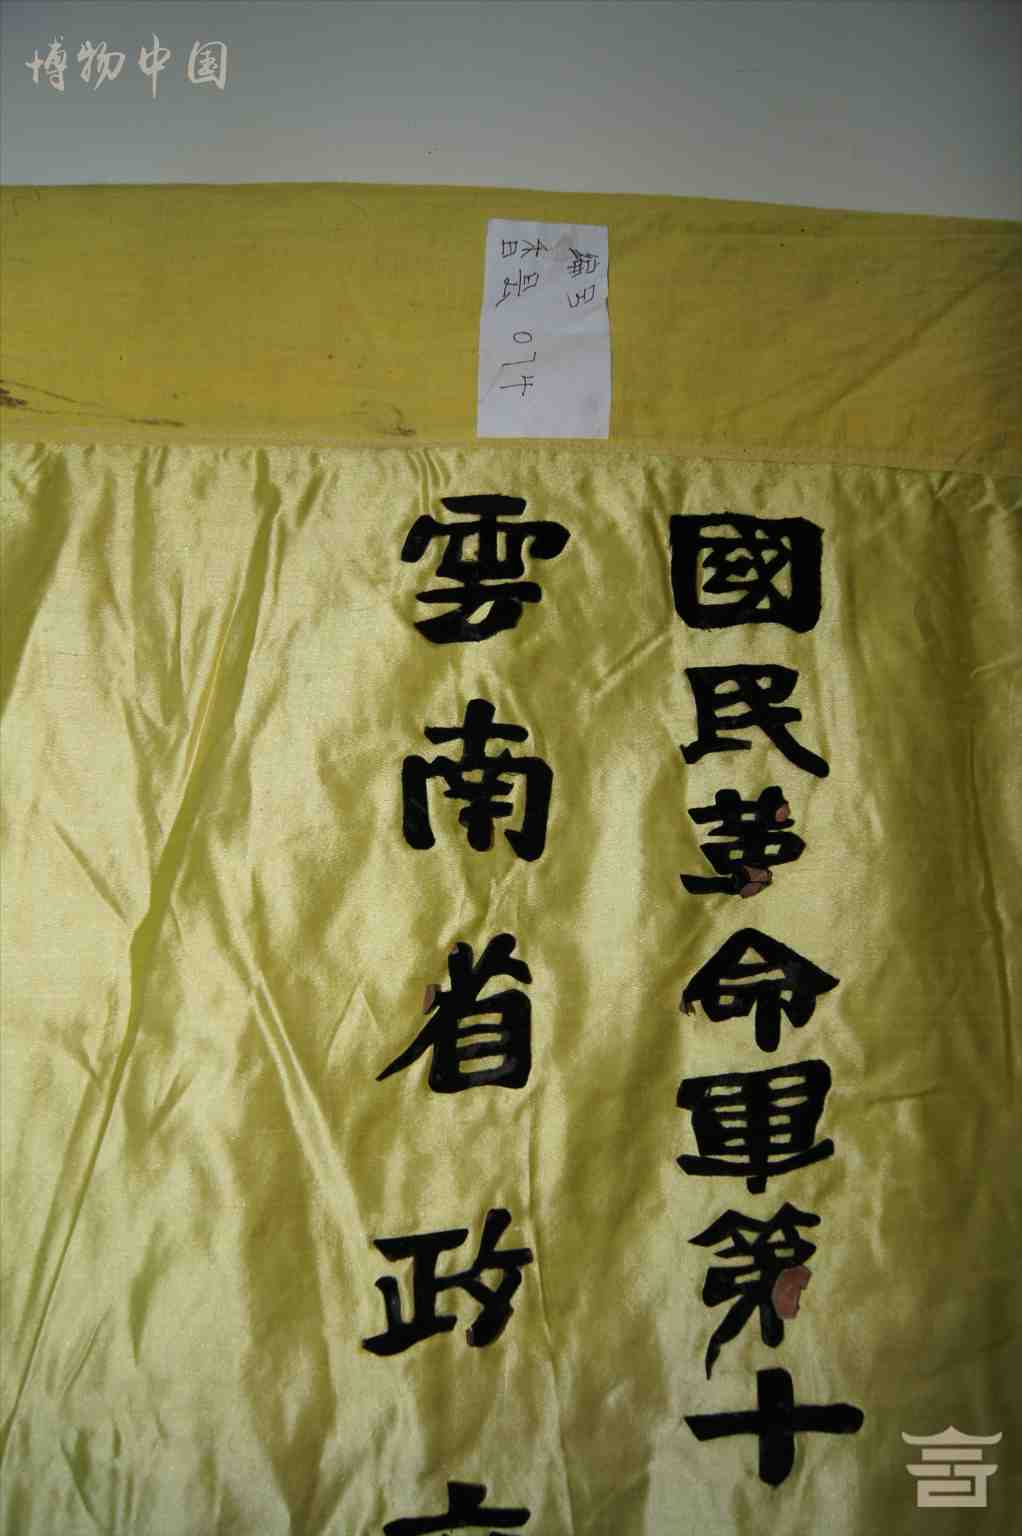 博物中国
编号
074
國民革命軍第十
雲南省政